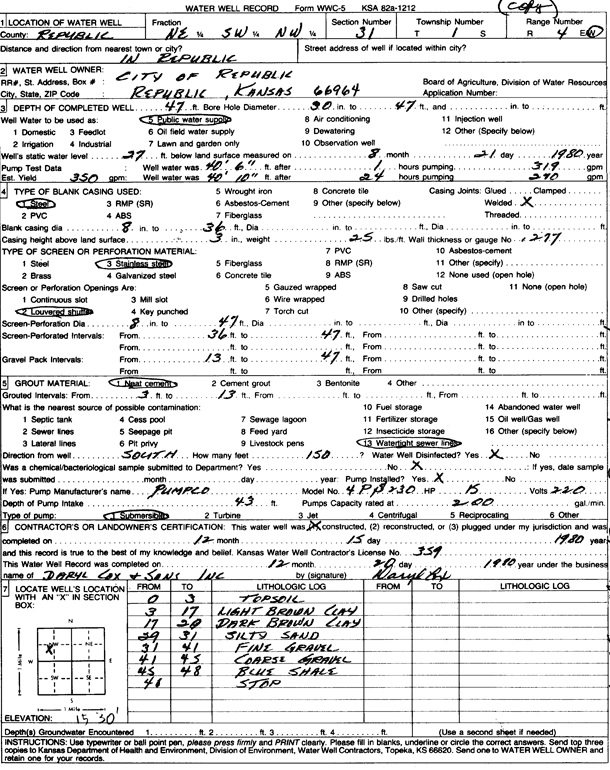 WATER WELL RECORD Form WWC-5 KSA 82a-1212 (Copy)
1 LOCATION OF WATER WELL Fraction Section Number Township Number Range Number
County: REPUBLIC NE ¼ SW ¼ NW ¼ 31 T 1 S R 4 E/W
Distance and direction from nearest town or city? Street address of well if located within city?
IN REPUBLIC
2 WATER WELL OWNER: CITY OF REPUBLIC
RR#, St. Address, Box # : Board of Agriculture, Division of Water Resources
City, State, ZIP Code : REPUBLIC, KANSAS 66964 Application Number:
3 DEPTH OF COMPLETED WELL 47 ft. Bore Hole Diameter 30 in. to 47 ft., and in. to ft.
Well Water to be used as: 5 Public water supply 8 Air conditioning 11 Injection well
1 Domestic 3 Feedlot 6 Oil field water supply 9 Dewatering 12 Other (Specify below)
2 Irrigation 4 Industrial 7 Lawn and garden only 10 Observation well
Well's static water level 27 ft. below land surface measured on 8 month 21 day 1980 year
Pump Test Data : Well water was 40' 6" ft. after 1 hours pumping 319 gpm
Est. Yield 350 gpm: Well water was 40' 10" ft. after 24 hours pumping 290 gpm
4 TYPE OF BLANK CASING USED: 5 Wrought iron 8 Concrete tile Casing Joints: Glued Clamped
1 Steel 3 RMP (SR) 6 Asbestos-Cement 9 Other (specify below) Welded X
2 PVC 4 ABS 7 Fiberglass Threaded
Blank casing dia 8 in. to 36 ft., Dia in. to ft., Dia in. to ft.
Casing height above land surface 3 in., weight 25 lbs./ft. Wall thickness or gauge No .277
TYPE OF SCREEN OR PERFORATION MATERIAL: 7 PVC 10 Asbestos-cement
1 Steel 3 Stainless steel 5 Fiberglass 8 RMP (SR) 11 Other (specify)
2 Brass 4 Galvanized steel 6 Concrete tile 9 ABS 12 None used (open hole)
Screen or Perforation Openings Are: 5 Gauzed wrapped 8 Saw cut 11 None (open hole)
1 Continuous slot 3 Mill slot 6 Wire wrapped 9 Drilled holes
2 Louvered shutter 4 Key punched 7 Torch cut 10 Other (specify)
Screen-Perforation Dia 8 in. to 47 ft., Dia in. to ft., Dia in. to ft.
Screen-Perforated Intervals: From 36 ft. to 47 ft., From ft. to ft.
From ft. to ft., From ft. to ft.
Gravel Pack Intervals: From 13 ft. to 47 ft., From ft. to ft.
From ft. to ft., From ft. to ft.
5 GROUT MATERIAL: 1 Neat cement 2 Cement grout 3 Bentonite 4 Other
Grouted Intervals: From 3 ft. to 13 ft., From ft. to ft., From ft. to ft.
What is the nearest source of possible contamination: 10 Fuel storage 14 Abandoned water well
1 Septic tank 4 Cess pool 7 Sewage lagoon 11 Fertilizer storage 15 Oil well/Gas well
2 Sewer lines 5 Seepage pit 8 Feed yard 12 Insecticide storage 16 Other (specify below)
3 Lateral lines 6 Pit privy 9 Livestock pens 13 Watertight sewer lines
Direction from well SOUTH How many feet 150 ? Water Well Disinfected? Yes X No
Was a chemical/bacteriological sample submitted to Department? Yes No X : If yes, date sample
was submitted month day year: Pump Installed? Yes X No
If Yes: Pump Manufacturer's name PUMPCO Model No. HP 15 Volts 220
Depth of Pump Intake 43 ft. Pumps Capacity rated at 200 gal./min.
Type of pump: 1 Submersible 2 Turbine 3 Jet 4 Centrifugal 5 Reciprocating 6 Other
6 CONTRACTOR'S OR LANDOWNER'S CERTIFICATION: This water well was (1) constructed, (2) reconstructed, or (3) plugged under my jurisdiction and was
completed on 12 month 15 day 1980 year
and this record is true to the best of my knowledge and belief. Kansas Water Well Contractor's License No. 359
This Water Well Record was completed on 12 month 20 day 1980 year under the business
name of DARYL COX & SONS INC by (signature) Daryl Cox
7 LOCATE WELL'S LOCATION WITH AN "X" IN SECTION BOX:
FROM TO LITHOLOGIC LOG FROM TO LITHOLOGIC LOG
0 3 TOPSOIL
3 17 LIGHT BROWN CLAY
17 29 DARK BROWN CLAY
29 31 SILTY SAND
31 41 FINE GRAVEL
41 45 COARSE GRAVEL
45 48 BLUE SHALE
48 STOP
N
NW NE
X
W E
SW SE
S
1 Mile
ELEVATION: 1530
Depth(s) Groundwater Encountered 1. ft. 2. ft. 3. ft. 4. ft. (Use a second sheet if needed)
INSTRUCTIONS: Use typewriter or ball point pen, please press firmly and PRINT clearly. Please fill in blanks, underline or circle the correct answers. Send top three
copies to Kansas Department of Health and Environment, Division of Environment, Water Well Contractors, Topeka, KS 66620. Send one to WATER WELL OWNER and
retain one for your records.